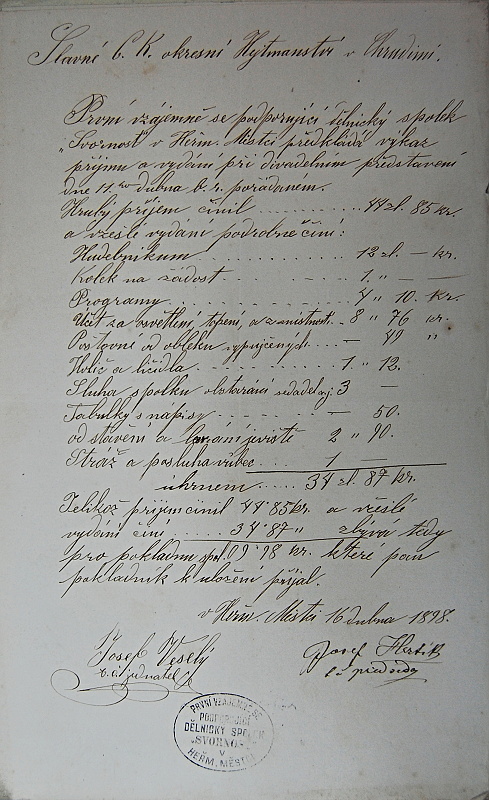 Slavné C. K. okresní Hejtmanství v Chrudimi.
První vzájemně se podporující dělnický spolek
„Svornost" v Heřm. Městci předkládá výkaz
příjmu a vydání při divadelním představení
dne 11.ho dubna b. r. pořádaném.
Hrubý příjem činil .......... 44 zl. 85 kr.
a vzešlé vydání podrobně činí:
Hudebníkum .......... 12 zl. — kr.
Kolek na žádost .......... 1 " — —
Programy .......... 4 " 10. kr.
Účet za osvětlení, topení, a zamístnost. 8 " 76 kr.
Poštovní od obleku vypujčených — 49 "
Holič a líčidla .......... 1 " 12.
Sluha spolku obstarání sedadel aj. 3 —
Tabulky s napisy .......... — 50.
od stavění a jeviste 2 " 90.
Stráž a posluha vůbec .......... 1 —
úhrnem .......... 34 zl. 87 kr.
Jelikož příjem činil 44 85 kr. a vzešlé
vydání činí .......... 34 87 " zbývá tedy
pro pokladnu spol. 09 98 kr. které pan
pokladník k uložení přijal.
v Heřm. Městci 16 dubna 1898.
Josef Veselý
t. č. jednatel
Josef
t. č. předseda
PRVNÍ VZÁJEMNĚ SE
PODPORUJÍCÍ
DĚLNICKÝ SPOLEK
„SVORNOST"
V
HEŘM. MĚSTCI